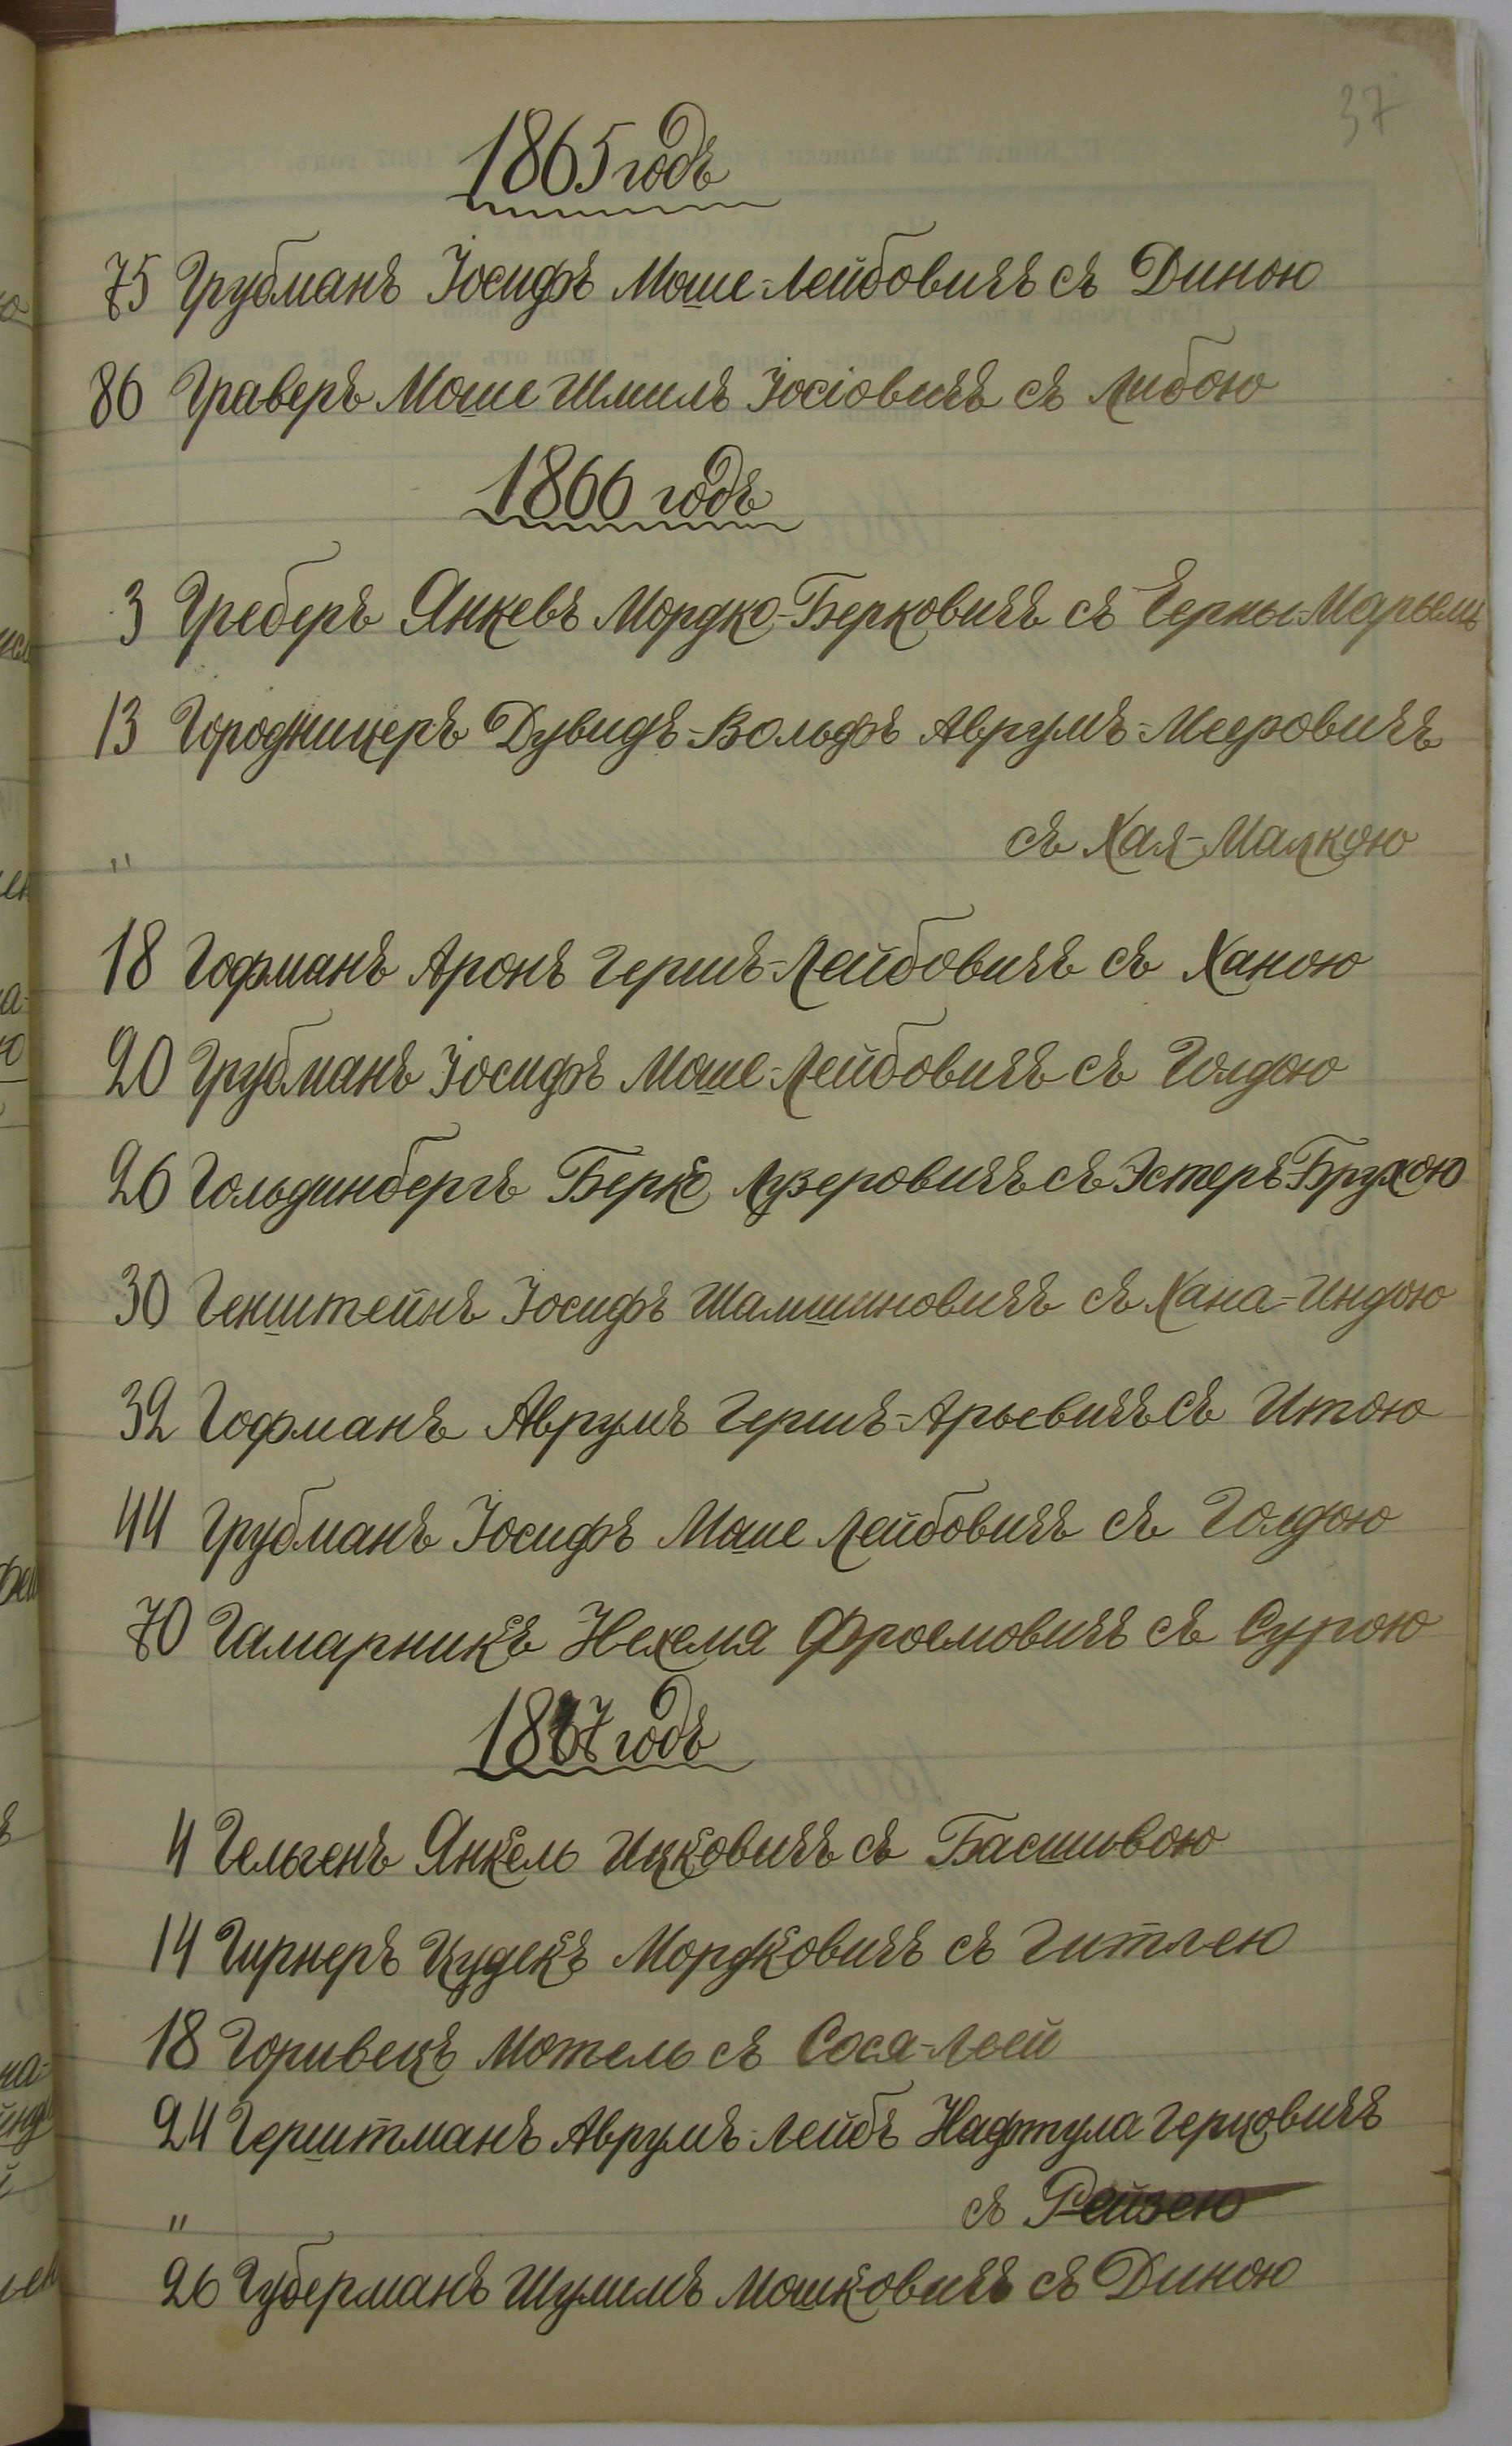 37
1865 годъ
75 Грубманъ Іосифъ Моше-Лейбовичъ съ Диною
86 Граверъ Моше Шмилъ Іосіовичъ съ Либою
1866 годъ
3 Греберъ Янкевъ Мордко-Берковичъ съ Черны-Марьемъ
13 Городницеръ Дувидъ-Вольфъ Аврумъ-Мееровичъ
" съ Хая-Малкою
18 Гофманъ Аронъ Гершъ-Лейбовичъ съ Ханою
20 Грубманъ Іосифъ Моше-Лейбовичъ съ Голдою
26 Гольдинбергъ Берко Лузеровичъ съ Эстеръ-Брухою
30 Генштейнъ Іосифъ Шамшиновичъ съ Хана-Индою
32 Гофманъ Аврумъ Гершъ-Арьевичъ съ Итою
44 Грубманъ Іосифъ Моше Лейбовичъ съ Голдою
70 Гамарникъ Нехемя Фроемовичъ съ Сурою
1867 годъ
4 Гельгенъ Янкель Ицковичъ съ Басшивою
14 Гирнеръ Цудекъ Мордковичъ съ Гитлею
18 Горивецъ Мотель съ Сося-Леей
24 Герштманъ Аврумъ-Лейбъ Нафтула Герцовичъ
" съ Рейзею
26 Губерманъ Шулимъ Мошковичъ съ Диною